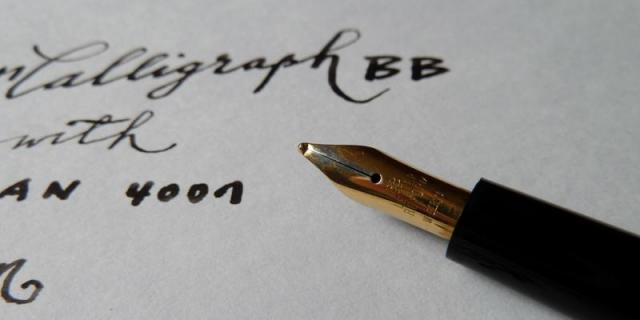 Calligraph BB
with
AN 4001